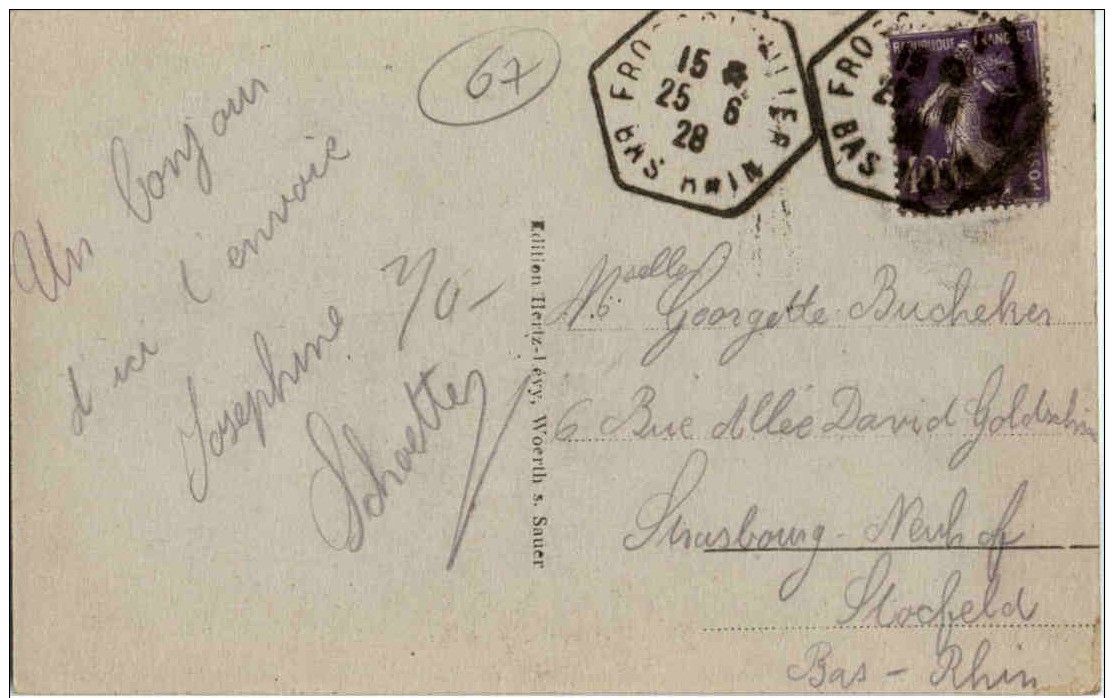 67
15
25 6
28
FRO
BAS RHIN
FRO
BAS
RÉPUBLIQUE FRANÇAISE
Un bonjour
d'ici t'envoie
Josephine
Schoetter
Edition Hertz-Lévy, Woerth s. Sauer
Mselle Georgette Bucheker
6 Rue Allée David Goldschm
Strasbourg - Neuhof
Stocfeld
Bas - Rhin